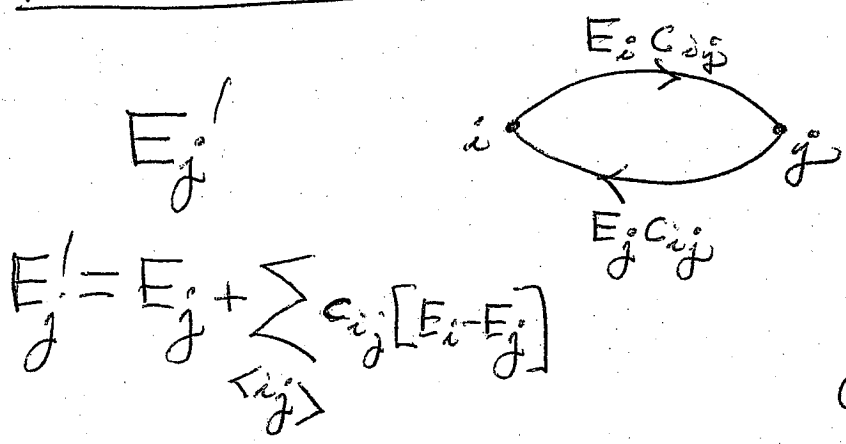 E_i C_ij
E_j'
i
j
E_j C_ij
E_j' = E_j + Σ_<ij> c_ij [E_i - E_j]